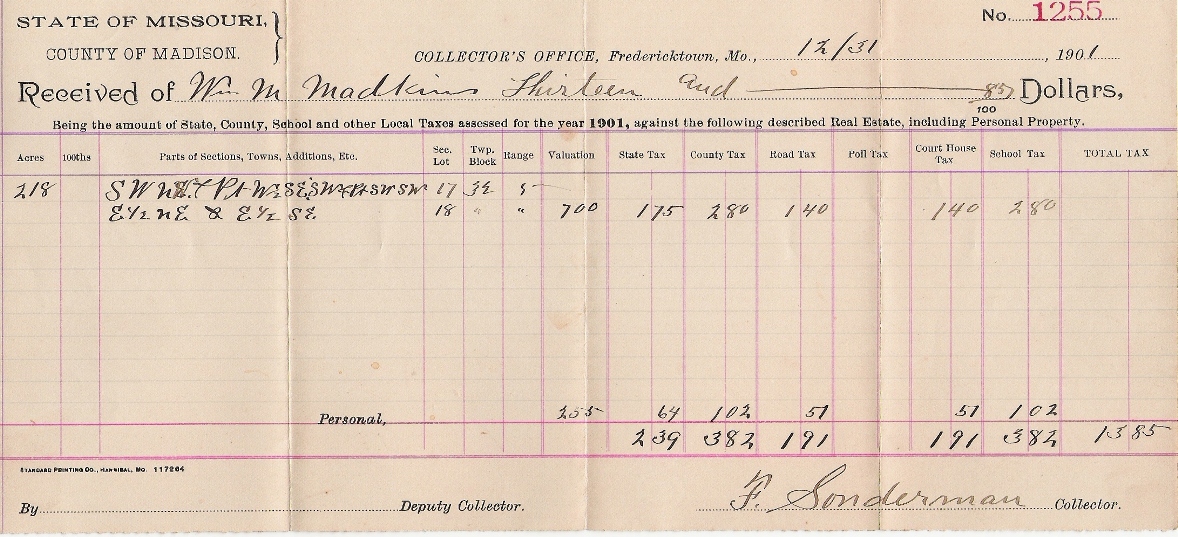 STATE OF MISSOURI, } No. 1255
COUNTY OF MADISON.
COLLECTOR'S OFFICE, Fredericktown, Mo., 12/31, 1901
Received of Wm M Madkins Thirteen and 85/100 Dollars,
Being the amount of State, County, School and other Local Taxes assessed for the year 1901, against the following described Real Estate, including Personal Property.
Acres 100ths Parts of Sections, Towns, Additions, Etc. Sec. Lot Twp. Block Range Valuation State Tax County Tax Road Tax Poll Tax Court House Tax School Tax TOTAL TAX
218 SW Pt W½ SE SW SW 17 32 5
E½ NE & E½ SE 18 " " 700 175 280 140 140 280
Personal, 255 64 102 51 51 102
239 382 191 191 382 1385
STANDARD PRINTING CO., HANNIBAL, MO. 117264
By Deputy Collector. F. Sonderman Collector.